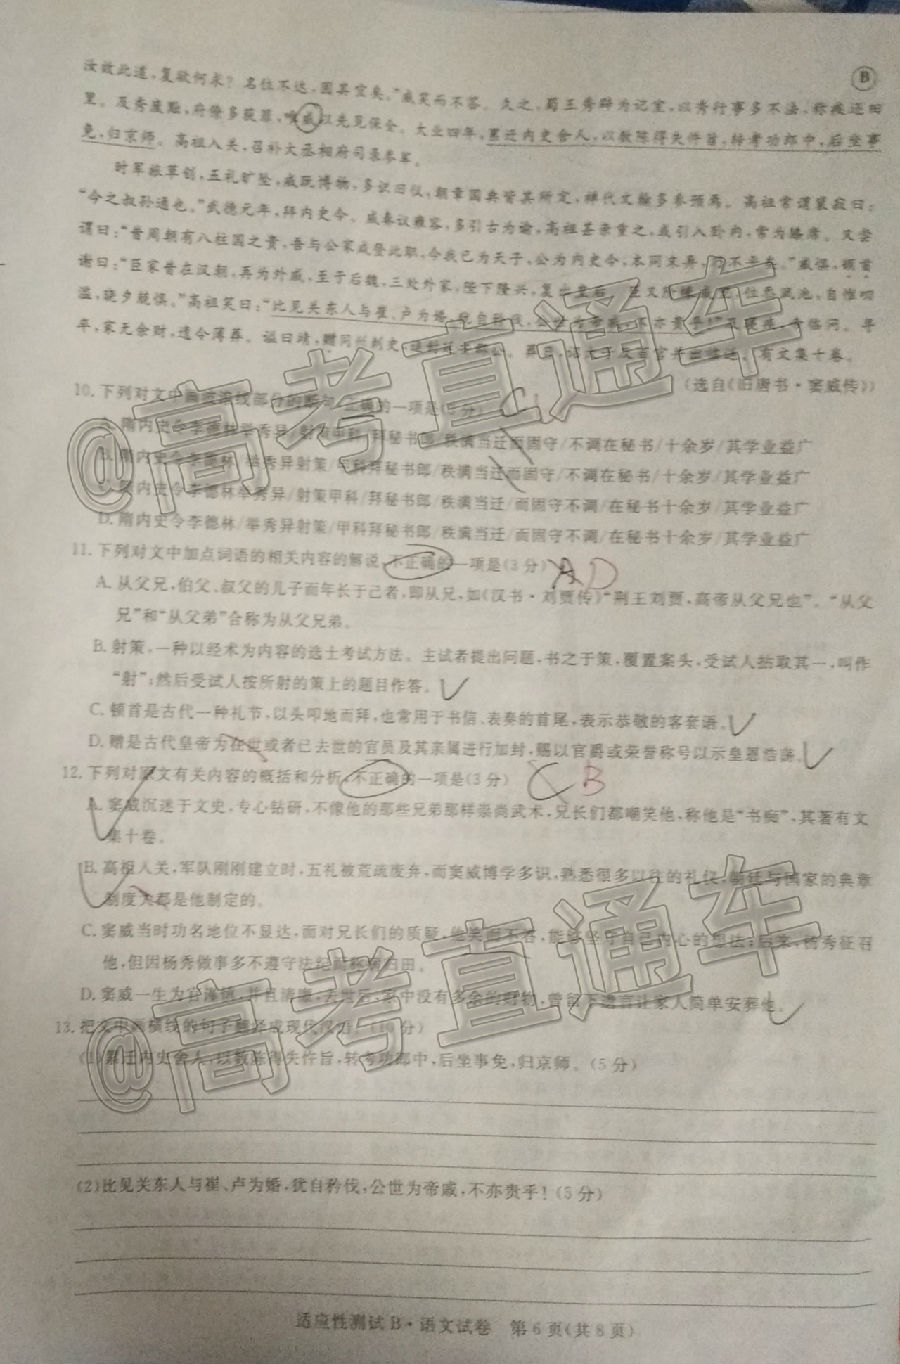 B
汝效此道，复欲何求？名位不达，固其宜矣。”威笑而不答。久之，蜀王秀辟为记室，以秀行事多不法，称疾还田
里。及秀废黜，府僚多获罪，唯威以先见保全。大业四年，累迁内史舍人，以数陈得失忤旨，转考功郎中，后坐事
免，归京师。高祖入关，召补大丞相府司录参军。
时军旅草创，五礼旷坠，威既博物，多识旧仪，朝章国典皆其所定，禅代文翰多参预焉。高祖常谓裴寂曰：
“今之叔孙通也。”武德元年，拜内史令。威奏议雍容，多引古为谕，高祖甚亲重之，或引入卧内，常为膝席。又尝
谓曰：“昔周朝有八柱国之贵，吾与公家咸登此职，今我已为天子，公为内史令，本同末异，乃不平矣。”威惧，顿首
谢曰：“臣家昔在汉朝，再为外戚，至于后魏，三处外家，陛下隆兴，复出皇后。臣又阶缘戚里，位忝凤池，自惟叨
滥，晓夕兢惧。”高祖笑曰：“比见关东人与崔、卢为婚，犹自矜伐，公世为帝戚，不亦贵乎！”及寝疾，
年，家无余财，遗令薄葬。谥曰靖，赠同州刺史，
有文集十卷。
（选自《旧唐书·窦威传》）
10.下列对文中画波浪线部分的断句，正确的一项是(3分) C
A.隋内史令李德林举秀异/射策甲科/拜秘书郎/秩满当迁而固守/不调在秘书/十余岁/其学业益广
B.隋内史令李德林/举秀异射策/甲科拜秘书郎/秩满当迁而固守/不调在秘书/十余岁/其学业益广
C.隋内史令李德林举秀异/射策甲科/拜秘书郎/秩满当迁/而固守不调/在秘书十余岁/其学业益广
D.隋内史令李德林/举秀异射策/甲科拜秘书郎/秩满当迁/而固守不调/在秘书十余岁/其学业益广
11.下列对文中加点词语的相关内容的解说，不正确的一项是(3分) A D
A.从父兄，伯父、叔父的儿子而年长于己者，即从兄，如《汉书·刘贾传》“荆王刘贾，高帝从父兄也”。“从父
兄”和“从父弟”合称为从父兄弟。
B.射策，一种以经术为内容的选士考试方法。主试者提出问题，书之于策，覆置案头，受试人拈取其一，叫作
“射”；然后受试人按所射的策上的题目作答。
C.顿首是古代一种礼节，以头叩地而拜，也常用于书信、表奏的首尾，表示恭敬的客套语。
D.赠是古代皇帝为在世或者已去世的官员及其亲属进行加封，赐以官爵或荣誉称号以示皇恩浩荡。
12.下列对原文有关内容的概括和分析，不正确的一项是(3分) C B
A.窦威沉迷于文史，专心钻研，不像他的那些兄弟那样崇尚武术，兄长们都嘲笑他，称他是“书痴”，其著有文
集十卷。
B.高祖入关，军队刚刚建立时，五礼被荒疏废弃，而窦威博学多识，熟悉很多以往的礼仪，朝廷与国家的典章
制度大都是他制定的。
C.窦威当时功名地位不显达，面对兄长们的质疑，他笑而不答，能够坚守自己内心的想法；后来，杨秀征召
他，但因杨秀做事多不遵守法纪而称病归田。
D.窦威一生为官谨慎，并且清廉，去世后，家中没有多余的财物，曾留下遗言让家人简单安葬他。
13.把文中画横线的句子翻译成现代汉语。(10分)
(1)累迁内史舍人，以数陈得失忤旨，转考功郎中，后坐事免，归京师。(5分)
(2)比见关东人与崔、卢为婚，犹自矜伐，公世为帝戚，不亦贵乎！(5分)
适应性测试B·语文试卷 第6页(共8页)
@高考直通车
@高考直通车